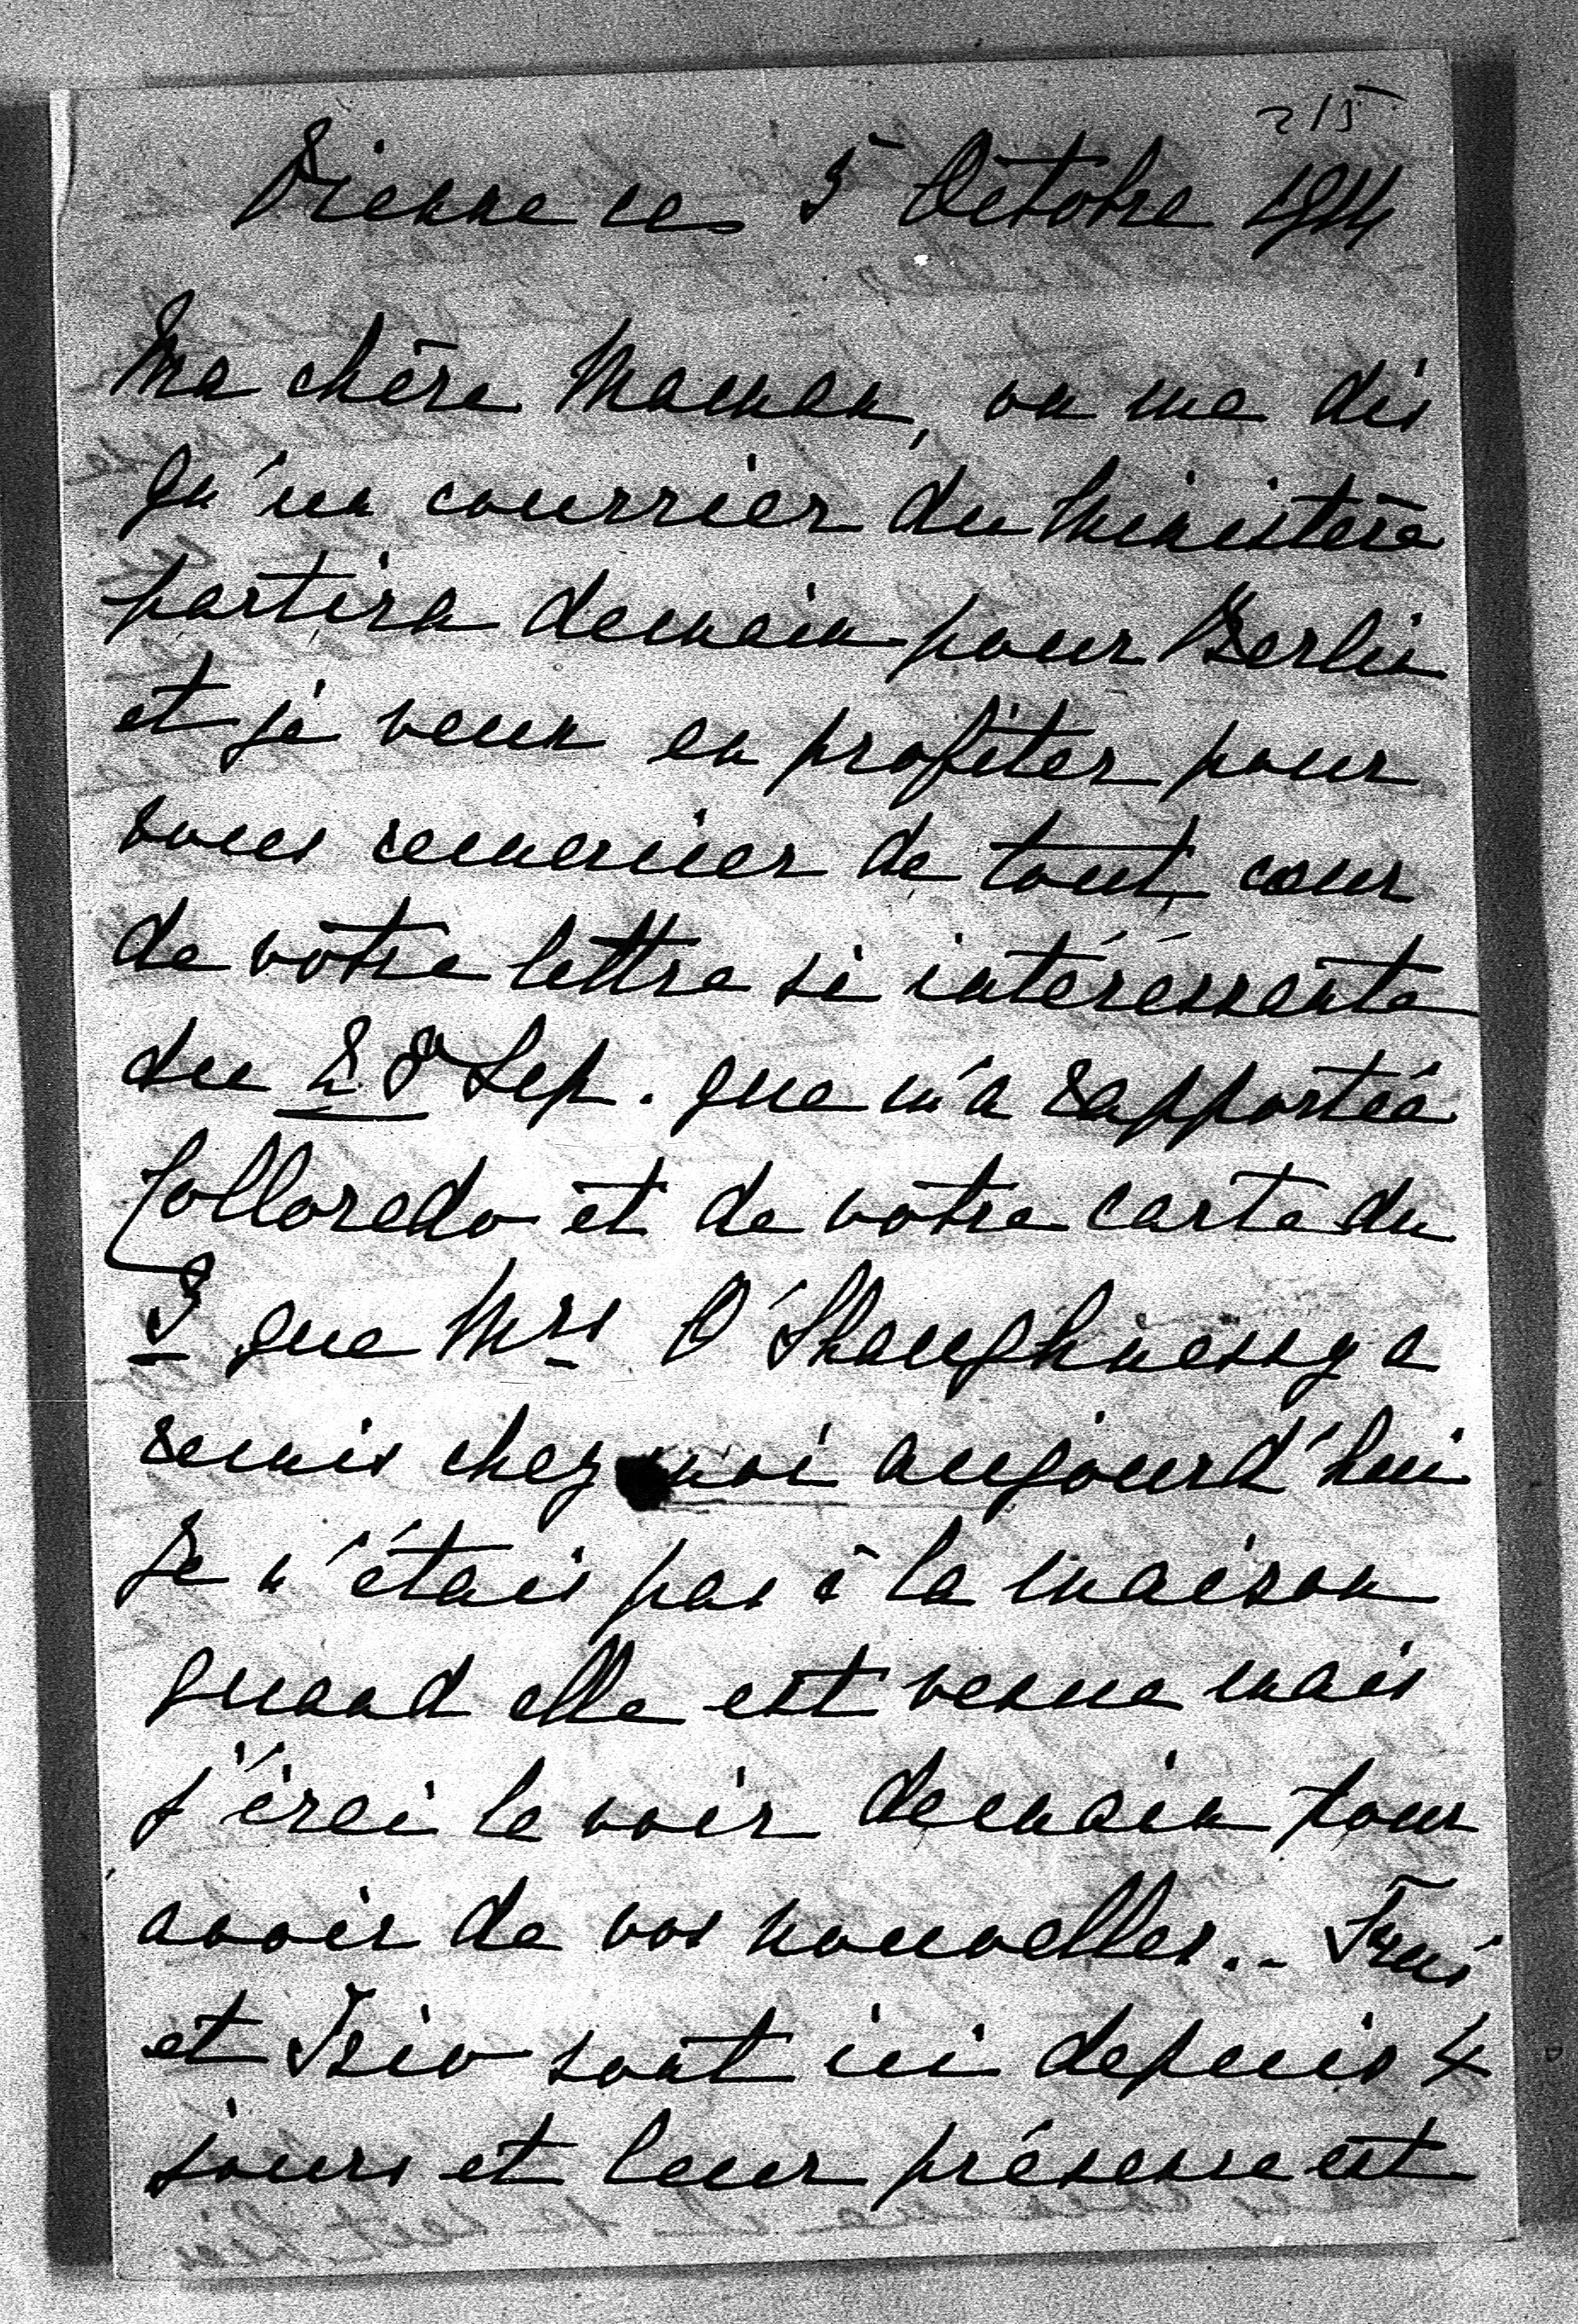 215
Vienne ce 5 Octobre 1914
Ma chère Maman, on me dis
qu'un courrier du Ministère
partira demain pour Berlin
et je veux en profiter pour
vous remercier de tout cœur
de votre lettre si intéréssante
du 28 Sep. que m'a rapportée
Colloredo et de votre carte du
que Mrs O'Shaughnessy a
remis chez moi aujourd'hui
Je n'étais pas à la maison
quand elle est venue mais
j'irai le voir demain pour
avoir de vos nouvelles..
et sont ici depuis 4
jours et leur présence est